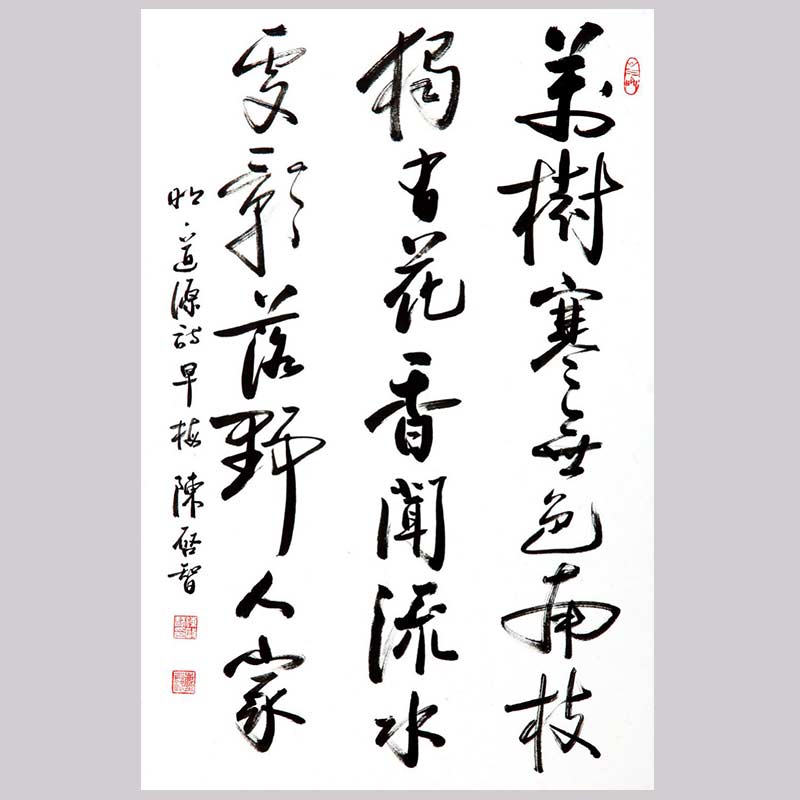 萬樹寒無色南枝
獨有花香聞流水
處影落野人家
明·道源詩早梅 陳啓智